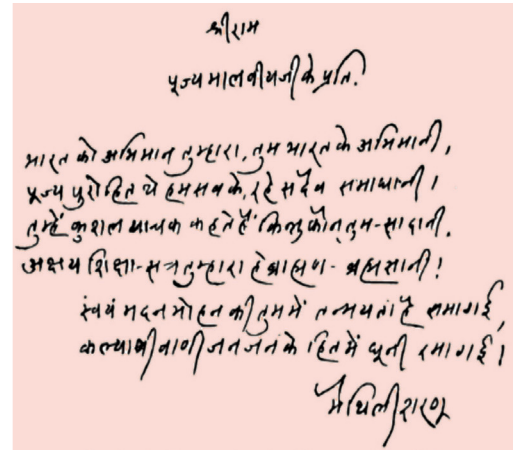 श्रीराम
पूज्य मालवीयजी के प्रति.
भारत को अभिमान तुम्हारा, तुम भारत के अभिमानी,
पूज्य पुरोहित थे हम सबके, रहे सदैव समाधानी।
तुम्हें कुशल याचक कहते हैं किन्तु कौन तुम-सा दानी,
अक्षय शिक्षा-सत्र तुम्हारा हे ब्राह्मण-ब्रह्मज्ञानी!
स्वयं मदनमोहन की तुममें तन्मयता है समा गई,
कल्याणी वाणी जन जन के हित में धूनी रमा गई।
मैथिलीशरण